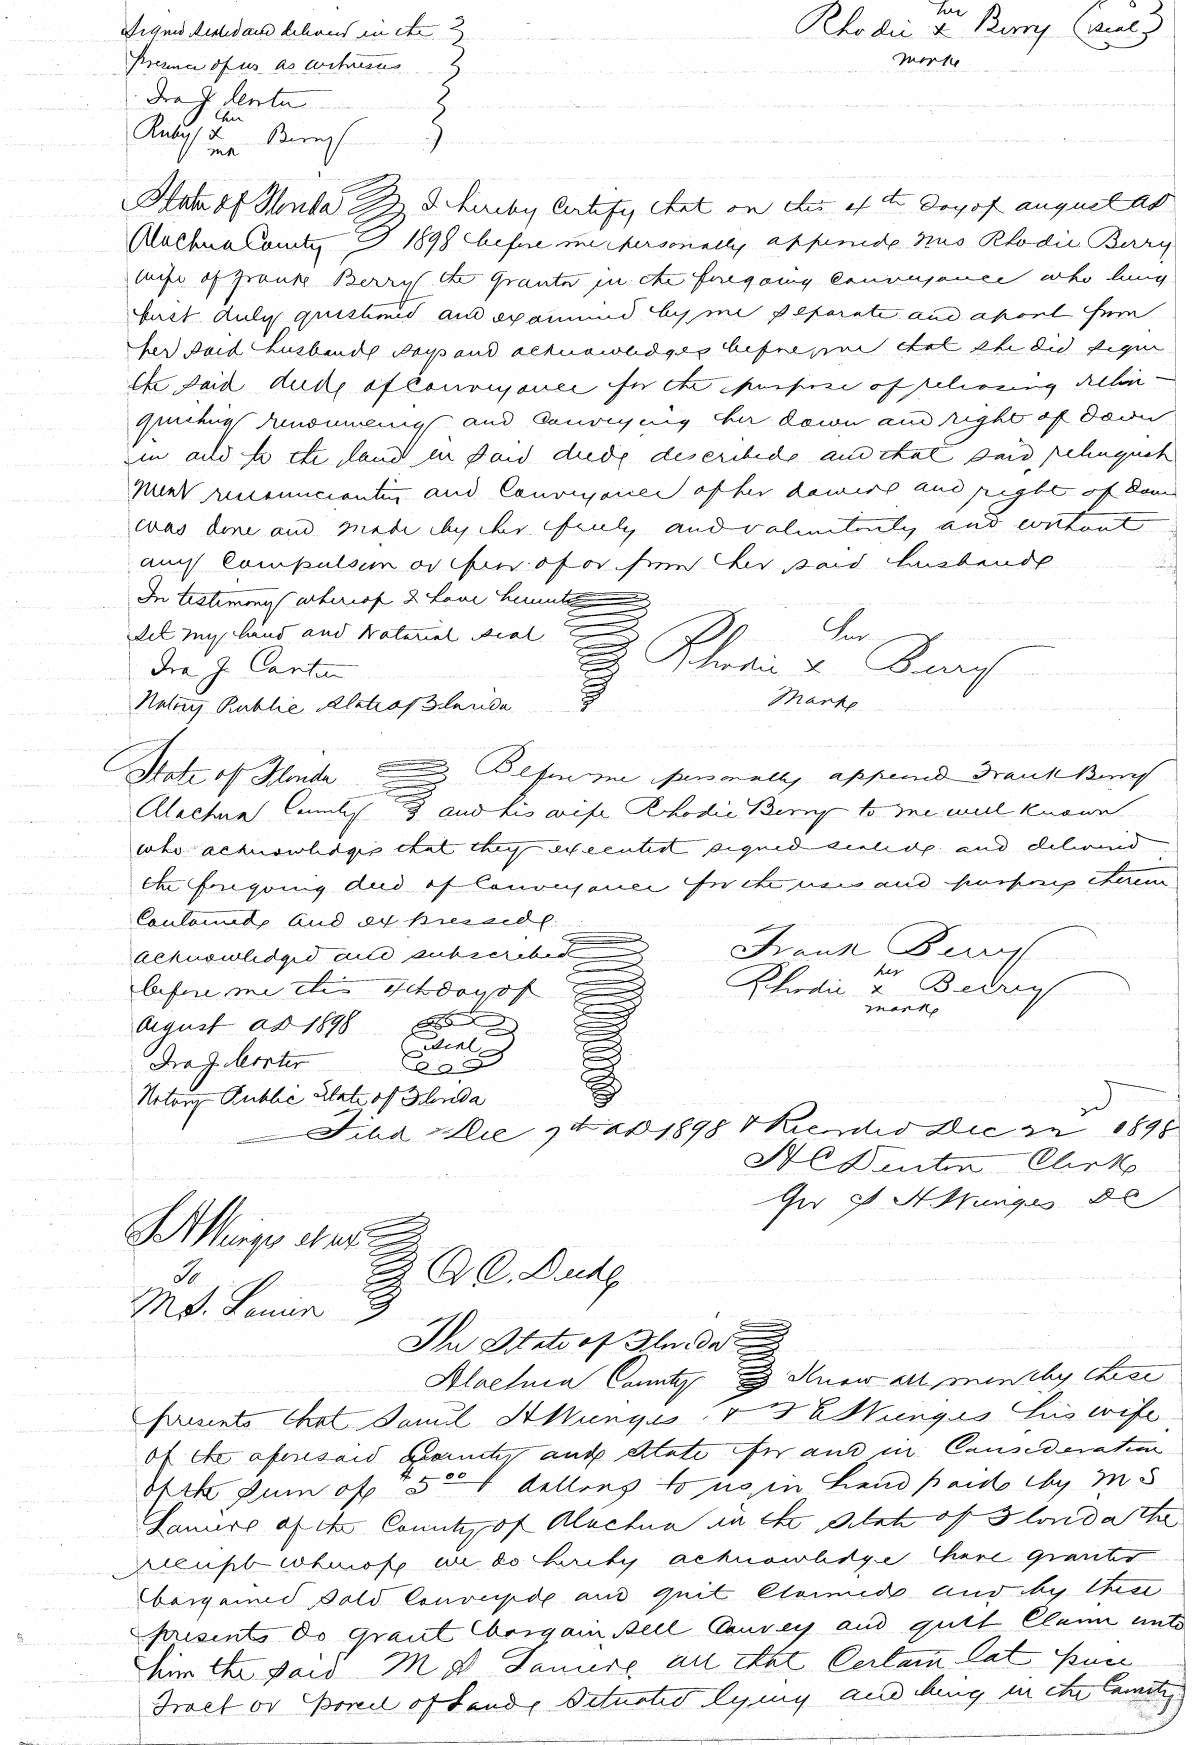 Signed sealed and delivered in the
presence of us as witnesses
Ira J. Carter
Ruby her x mark Berry
Rhodie her x mark Berry (seal)
State of Florida I hereby Certify that on this 4th Day of august AD
Alachua County 1898 before me personally appeared Mrs Rhodie Berry
wife of Frank Berry the Grantor in the foregoing Conveyance who being
first duly questioned and examined by me separate and apart from
her said husband says and acknowledges before me that she did sign
the said deed of Conveyance for the purpose of releasing relin-
quishing renouncing and Conveying her dower and right of dower
in and to the land in said deed described and that said relinquish
ment renunciation and Conveyance of her dower and right of dower
was done and made by her freely and voluntarily and without
any Compulsion or fear of or from her said husband
In testimony whereof I have hereunto
set my hand and Notarial seal
Ira J. Carter
Notary Public State of Florida
Rhodie her x mark Berry
State of Florida Before me personally appeared Frank Berry
Alachua County and his wife Rhodie Berry to me well known
who acknowledges that they executed signed sealed and delivered
the foregoing deed of Conveyance for the uses and purposes therein
Contained and expressed
acknowledged and subscribed
before me this 4th day of
August AD 1898
Ira J. Carter (seal)
Notary Public State of Florida
Frank Berry
Rhodie her x mark Berry
Filed Dec 7th AD 1898 & Recorded Dec 22nd 1898
H C Denton Clerk
Per S H Wienges DC
S H Wienges et ux
To
M S. Lanier
Q. C. Deed
The State of Florida
Alachua County Know all men by these
presents that Saml H Wienges & F E Wienges his wife
of the aforesaid County and State for and in Consideration
of the sum of $5 00 dollars to us in hand paid by M S
Laniere of the County of Alachua in the State of Florida the
receipt whereof we do hereby acknowledge have granted
bargained sold Conveyed and quit Claimed and by these
presents do grant bargain sell Convey and quit Claim unto
him the said M S Laniere all that Certain lot piece
Tract or parcel of Land Situated lying and being in the County